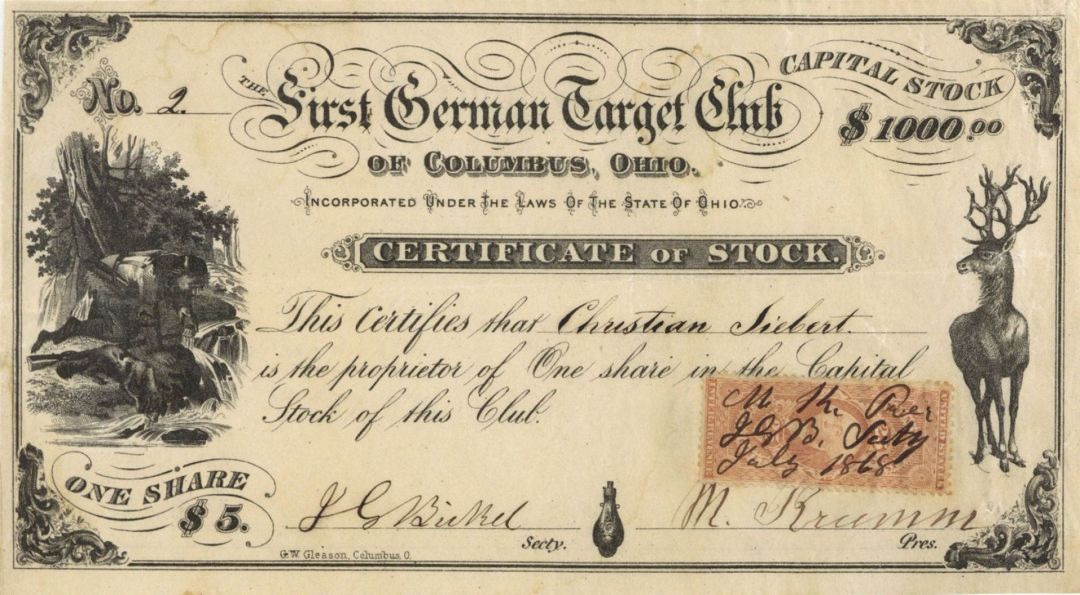 No. 2.
THE First German Target Club
OF COLUMBUS, OHIO.
INCORPORATED UNDER THE LAWS OF THE STATE OF OHIO.
CAPITAL STOCK
$1000.00
CERTIFICATE OF STOCK.
This Certifies that Christian Siebert.
is the proprietor of One share in the Capital
Stock of this Club.
M. K. Pres
J G B. Secty
July 1868
ONE SHARE
$5.
J G Bickel Secty.
M. Krumm Pres.
G.W. Gleason, Columbus, O.